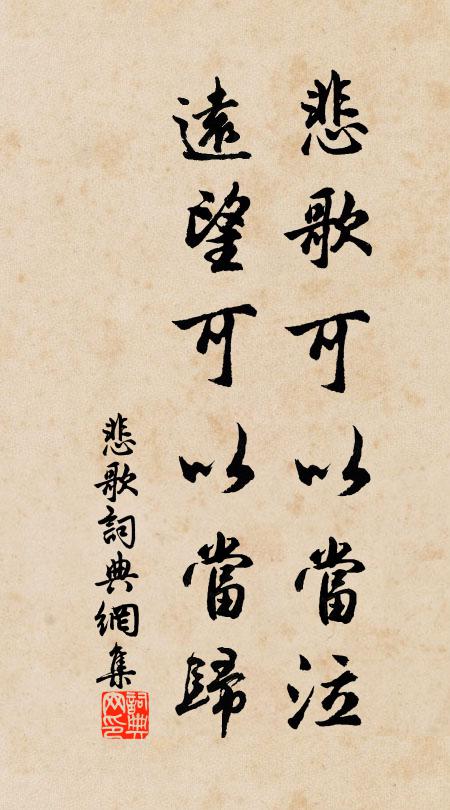 悲歌可以當泣
遠望可以當歸
悲歌詞典網集
詞典
网印